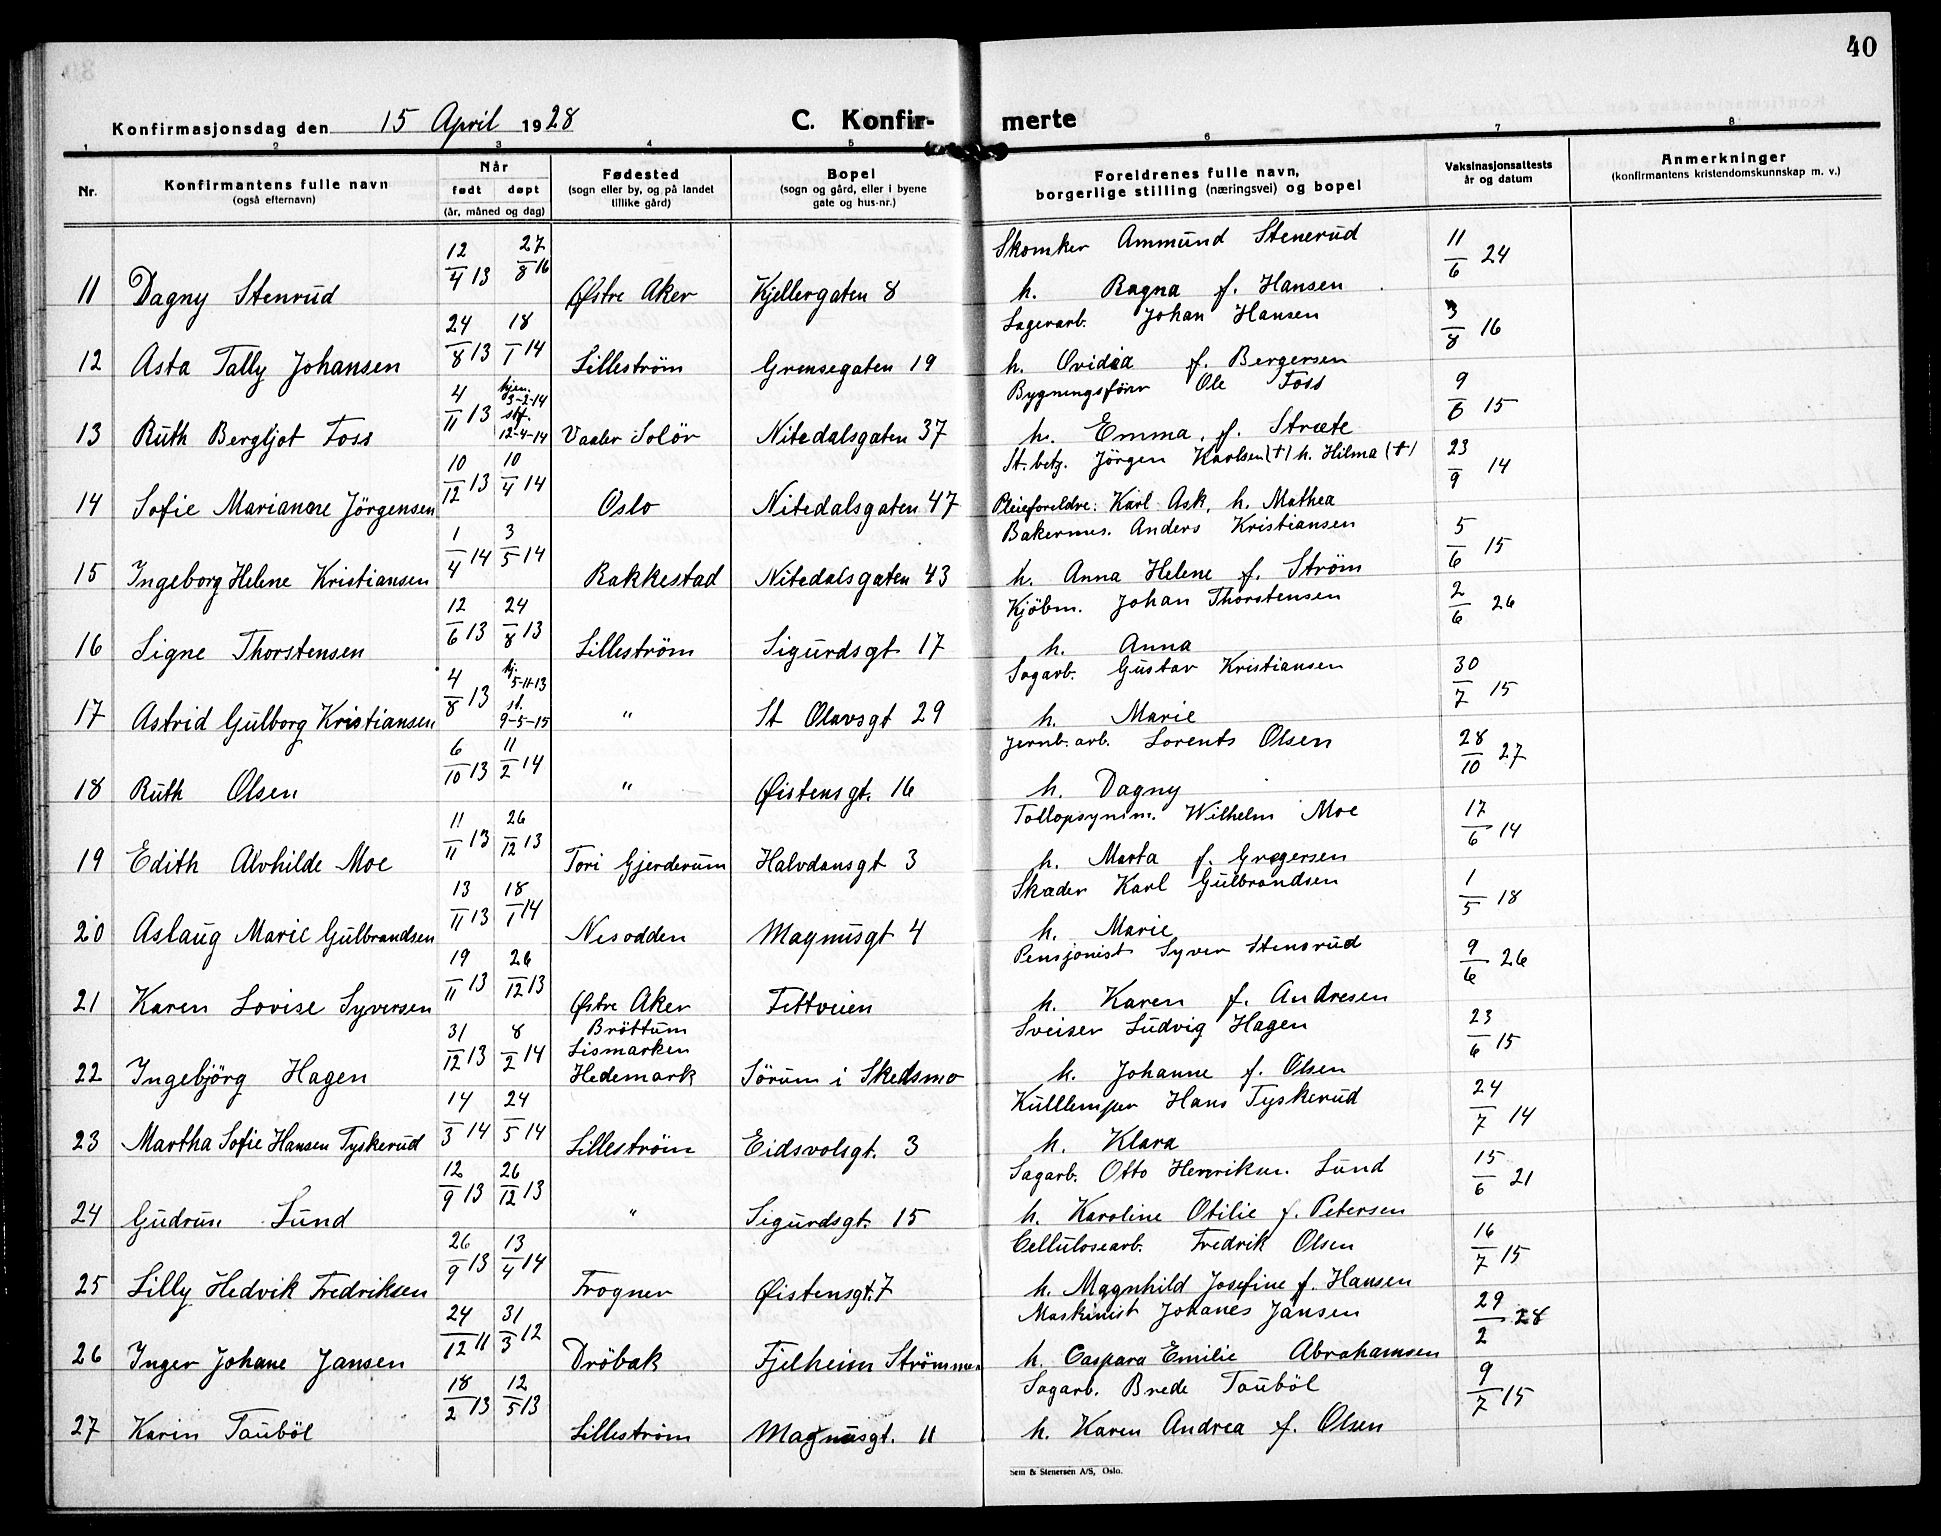 40
Konfirmasjonsdag den 15 April 1928 C. Konfir- merte
1 2 3 4 5 6 7 8
Nr. Konfirmantens fulle navn (også efternavn) Når født døpt (år, måned og dag) Fødested (sogn eller by, og på landet tillike gård) Bopel (sogn og gård, eller i byene gate og hus-nr.) Foreldrenes fulle navn, borgerlige stilling (næringsvei) og bopel Vaksinasjonsattests år og datum Anmerkninger (konfirmantens kristendomskunnskap m. v.)
12/4 13 27/8 16 Skomker Ammund Stenerud 11/6 24
11 Dagny Stenrud Østre Aker Kjellergaten 8 h. Ragna f. Hansen
24/8 13 18/1 14 Lagerarb. Johan Hansen 3/8 16
12 Asta Tally Johansen Lilleström Grensegaten 19 h. Ovidia f. Bergersen
4/11 13 hjem. 3-2-14 stf. 12-4-14 Bygningsförer Ole Foss 9/6 15
13 Ruth Bergljot Foss Vaaler Solör Nitedalsgaten 37 h. Emma f. Stræte
10/12 13 10/4 14 St. betj. Jörgen Karlsen (†) h. Hilma (†) 23/9 14
14 Sofie Marianne Jörgensen Oslo Nitedalsgaten 47 Pleieforeldre: Karl Ask, h. Mathea
1/4 14 3/5 14 Bakermes. Anders Kristiansen 5/6 15
15 Ingeborg Helene Kristiansen Rakkestad Nitedalsgaten 43 h. Anna Helene f. Ström
12/6 13 24/8 13 Kjöbm. Johan Thorstensen 2/6 26
16 Signe Thorstensen Lilleström Sigurdsgt 17 h. Anna
4/8 13 hj. 5-11-13 st. 9-5-15 Sagarb. Gustav Kristiansen 30/7 15
17 Astrid Gulborg Kristiansen " St Olavsgt 29 h. Marie
6/10 13 11/2 14 Jernb. arb. Lorents Olsen 28/10 27
18 Ruth Olsen " Øistensgt. 16 h. Dagny
11/11 13 26/12 13 Tollopsynsm. Wilhelm Moe 17/6 14
19 Edith Alvhilde Moe Tori Gjerderum Halvdansgt 3 h. Marta f. Gregersen
13/11 13 18/1 14 Skæder Karl Gulbrandsen 1/5 18
20 Aslaug Marie Gulbrandsen Nesodden Magnusgt 4 h. Marie
19/11 13 26/12 13 Pensjonist Syver Stensrud 9/6 26
21 Karen Lovise Syversen Østre Aker Fettveien h. Karen f. Andresen
31/12 13 8/2 14 Bröttum Lismarken Sveiser Ludvig Hagen 23/6 15
22 Ingebjörg Hagen Hedemark Sörum i Skedsmo h. Johanne f. Olsen
14/3 14 24/5 14 Kullemper Hans Tyskerud 24/7 14
23 Martha Sofie Hansen Tyskerud Lilleström Eidsvolsgt. 3 h. Klara
12/9 13 26/12 13 Sagarb. Otto Henriksen Lund 15/6 21
24 Gudrun Lund " Sigurdsgt. 15 h. Karoline Otilie f. Petersen
26/9 13 13/4 14 Cellulosearb. Fredrik Olsen 16/7 15
25 Lilly Hedvik Fredriksen Frogner Øistensgt. 7 h. Magnhild Josefine f. Hansen
24/12 11 31/3 12 Maskinist Johanes Jansen 29/2 28
26 Inger Johane Jansen Dröbak Fjelheim Strömmen h. Caspara Emilie Abrahamsen
18/2 13 12/5 13 Sagarb. Brede Tauböl 9/7 15
27 Karin Tauböl Lilleström Magnusgt. 11 h. Karen Andrea f. Olsen
Sem & Stenersen A/S, Oslo.